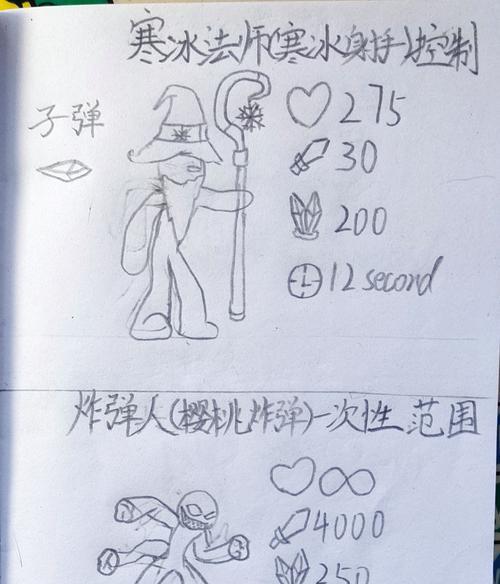 寒冰法师(寒冰身手)控制
子弹
275
30
200
12 second
炸弹人(樱桃炸弹)一次性 范围
∞
4000
250